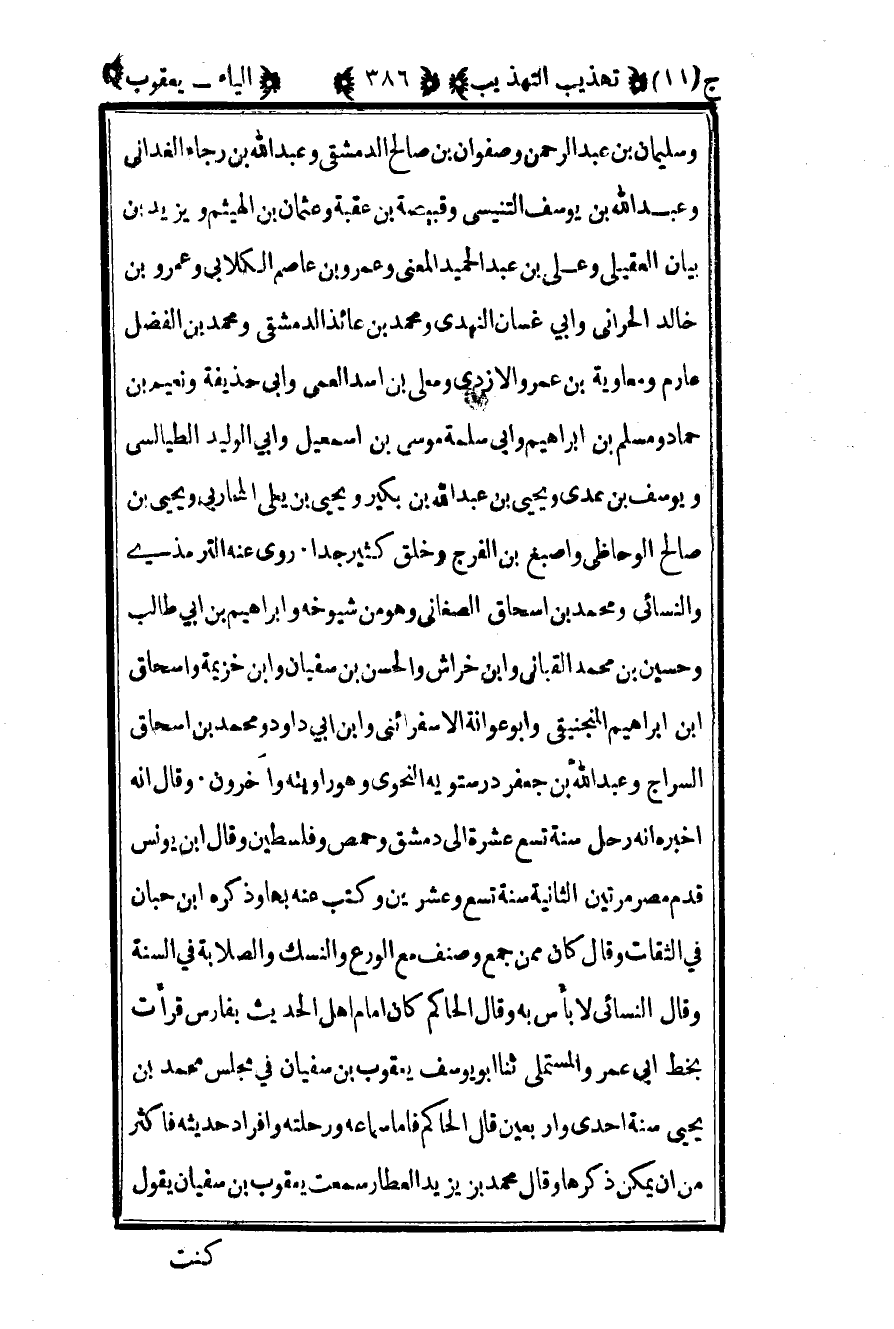 ج (١١) تهذيب التهذيب ٣٨٦ الياء ـ يعقوب
وسليمان بن عبدالرحمن وصفوان بن صالح الدمشقى وعبدالله بن رجاء الغدانى
وعبدالله بن يوسف التنيسى وقبيصة بن عقبة وعثمان بن الهيثم ويزيد بن
بيان العقيلى وعلى بن عبدالحميد المعنى وعمرو بن عاصم الكلابي وعمرو بن
خالد الحرانى وابي غسان النهدى ومحمد بن عائذ الدمشقى ومحمد بن الفضل
عارم ومعاوية بن عمرو الازدى ومعلى بن اسد العمى وابى حذيفة ونعيم بن
حماد ومسلم بن ابراهيم وابى سلمة موسى بن اسمعيل وابي الوليد الطيالسى
ويوسف بن عدى ويحيى بن عبدالله بن بكير ويحيى بن يعلى المحاربى ويحيى بن
صالح الوحاظى واصبغ بن الفرج وخلق كثير جدا · روى عنه الترمذى
والنسائى ومحمد بن اسحاق الصغانى وهو من شيوخه وابراهيم بن ابي طالب
وحسين بن محمد القبانى وابن خراش والحسن بن سفيان وابن خزيمة واسحاق
ابن ابراهيم المنجنيقى وابو عوانة الاسفرائنى وابن ابي داود ومحمد بن اسحاق
السراج وعبدالله بن جعفر درستويه النحوى وهو راويته وآخرون · وقال انه
اخبره انه رحل سنة تسع عشرة الى دمشق وحمص وفلسطين وقال ابن يونس
قدم مصر مرتين الثانية سنة تسع وعشرين وكتب عنه بها وذكره ابن حبان
في الثقات وقال كان ممن جمع وصنف مع الورع والنسك والصلابة في السنة
وقال النسائى لا بأس به وقال الحاكم كان امام اهل الحديث بفارس قرأت
بخط ابي عمرو المستملى ثنا ابو يوسف يعقوب بن سفيان في مجلس محمد بن
يحيى سنة احدى واربعين قال الحاكم فاما سماعه ورحلته وافراد حديثه فاكثر
من ان يمكن ذكرها وقال محمد بن يزيد العطار سمعت يعقوب بن سفيان يقول
كنت